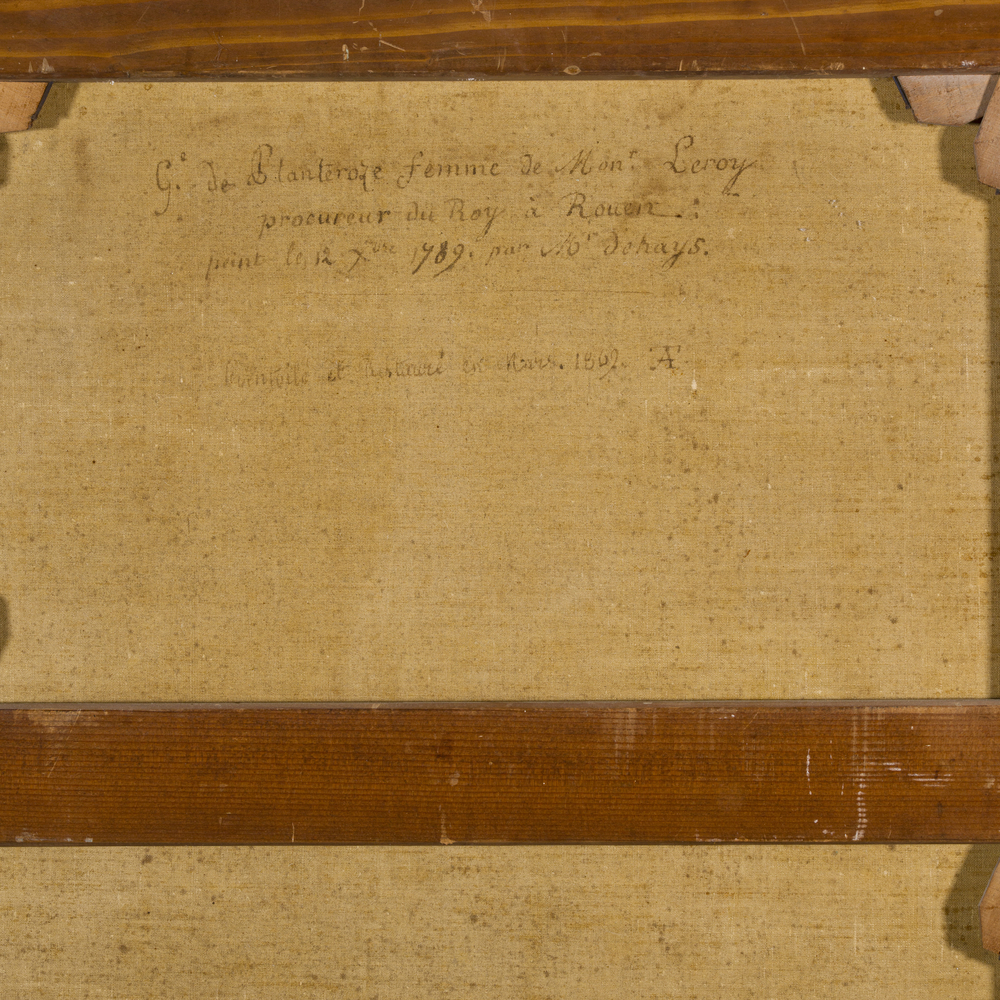 G.e de Planteroze femme de Monr. Leroy
procureur du Roy à Rouen.
peint le 12 Xbre 1789. par Mr dehays.
et restauré en Mars. AF